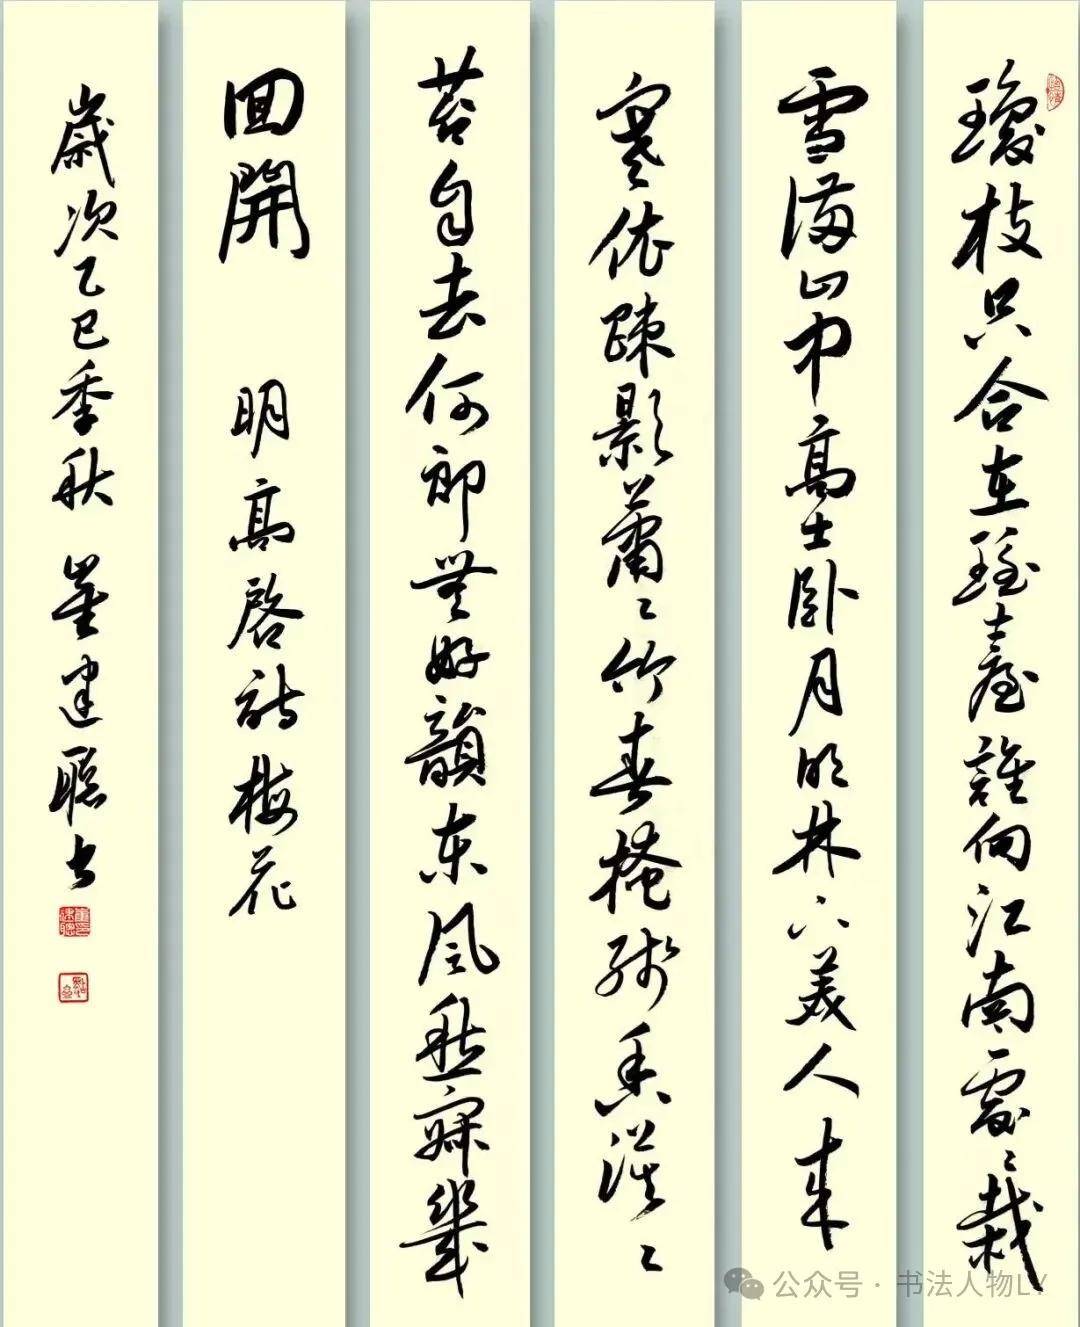 瓊枝只合在瑤臺誰向江南處〻栽
雪滿山中高士臥月明林下美人來
寒依疎影蕭〻竹春掩殘香漠〻
苔自去何郎無好韻东風愁寂幾
回開 明高啓詩梅花
歲次乙巳季秋 董建聰书
公众号 · 书法人物LY